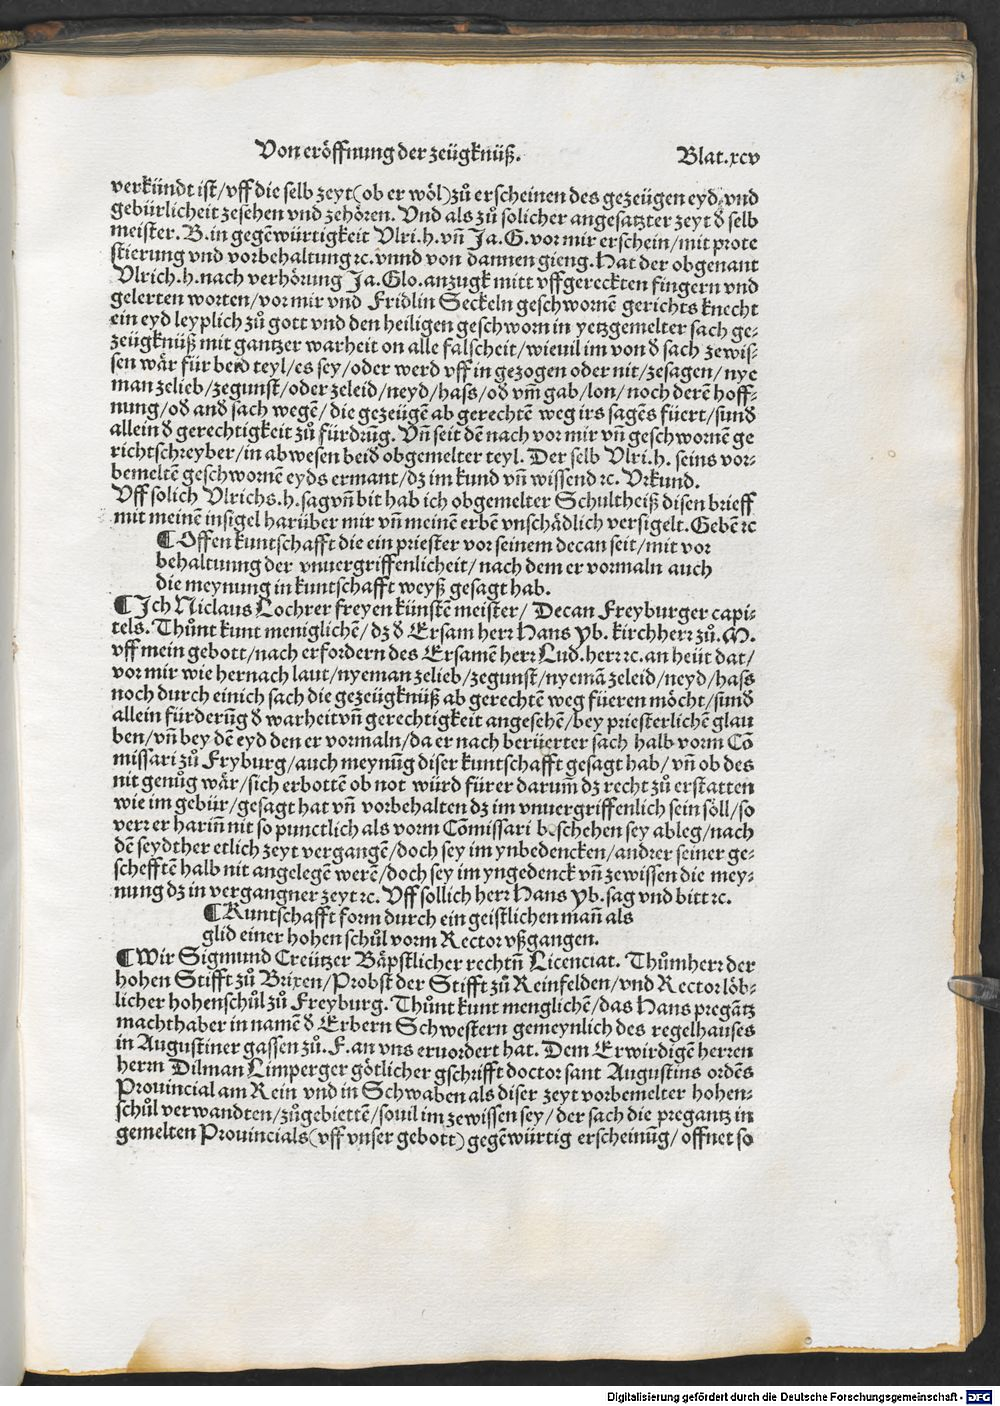 Von eröffnung der zeügknüß. Blat.xcv
verkündt ist/vff die selb zeyt(ob er wöl)zů erscheinen des gezeügen eyd, vnd
gebürlicheit zesehen vnd zehören. Vnd als zů solicher angesatzter zeyt d̕ selb
meister. B. in gegẽwürtigkeit Vlri.h.vñ Ja.G.vor mir erschein/mit prote
stierung vnd vorbehaltung ꝛc. vnnd von dannen gieng. Hat der obgenant
Vlrich.h.nach verhörung Ja.Glo.anzugk mitt vffgereckten fingern vnd
gelerten worten/vor mir vnd Fridlin Seckeln geschwornẽ gerichts knecht
ein eyd leyplich zů gott vnd den heiligen geschworn in yetzgemelter sach ge⸗
zeügknüß mit gantzer warheit on alle falscheit/wieuil im von d̕ sach zewis⸗
sen wär für beid teyl/es sey/oder werd vff in gezogen oder nit/zesagen/nye
man zelieb/zegunst/oder zeleid/neyd/hass/od̕ vm̃ gab/lon/noch derẽ hoff⸗
nung/od̕ and̕ sach wegẽ/die gezeügẽ ab gerechtẽ weg irs sagẽs füert/sund̕
allein d̕ gerechtigkeit zů fürdrũg. Vñ seit dẽ nach vor mir vñ geschwornẽ ge
richtschreyber/in abwesen beid̕ obgemelter teyl. Der selb Vlri.h. seins vor⸗
bemeltẽ geschwornẽ eyds ermant/dz im kund vñ wissend ꝛc. Vrkund.
Vff solich Vlrichs.h.sag vñ bit hab ich obgemelter Schultheiß disen brieff
mit meinẽ insigel harüber mir vñ meinẽ erbẽ vnschädlich versigelt. Gebẽ ꝛc
¶ Offen kuntschafft die ein priester vor seinem decan seit/mit vor
behaltnung der vnuergriffenlicheit/nach dem er vormaln auch
die meynung in kuntschafft weyß gesagt hab.
¶ Jch Niclaus Lochrer freyen künstẽ meister/ Decan Freyburger capi⸗
tels. Thůnt kunt meniglichẽ/dz d̕ Ersam herr Hans yb. kirchherr zů.M.
vff mein gebott/nach erfordern des Ersamẽ herr Lud.herr ꝛc.an heüt dat/
vor mir wie hernach laut/nyeman zelieb/zegunst/nyemã zeleid/neyd/hass
noch durch einich sach die gezeügknüß ab gerechtẽ weg füeren möcht/sund̕
allein fürderũg d̕ warheit vñ gerechtigkeit angesehẽ/bey priesterlichẽ glau
ben/vñ bey dẽ eyd den er vormaln/da er nach berüerter sach halb vorm Cõ
missari zů Fryburg/auch meynũg diser kuntschafft gesagt hab/vñ ob des
nit genůg wär/sich erbottẽ ob not würd fürer darum̃ dz recht zů erstatten
wie im gebür/gesagt hat vñ vorbehalten dz im vnuergriffenlich sein söll/so
verr er hariñ nit so punctlich als vorm Cõmissari beschehen sey ableg/nach
dẽ seydther etlich zeyt vergangẽ/doch sey im ynbedencken/andrer seiner ge⸗
schefftẽ halb nit angelegẽ werẽ/doch sey im yngedenck vñ zewissen die mey⸗
nung dz in vergangner zeyt ꝛc. Vff sollich herr Hans yb.sag vnd bitt ꝛc.
¶ Kuntschafft form durch ein geistlichen mañ als
glid einer hohen schůl vorm Rector vßgangen.
¶ Wir Sigmund Creützer Bäpstlicher rechtñ Licenciat. Thůmherr der
hohen Stifft zů Brixen/Probst der Stifft zů Reinfelden/vnd Rector löb⸗
licher hohenschůl zů Freyburg. Thůnt kunt menglichẽ/das Hans pregãtz
machthaber in namẽ d̕ Erbern Schwestern gemeynlich des regelhauses
in Augustiner gassen zů.F.an vns eruordert hat. Dem Erwirdigẽ herren
herrn Dilman Limperger götlicher gschrifft doctor sant Augustins ordẽs
Prouincial am Rein vnd in Schwaben als diser zeyt vorbemelter hohen⸗
schůl verwandten/zůgebiettẽ/souil im zewissen sey/der sach die pregantz in
gemelten Prouincials(vff vnser gebott)gegẽwürtig erscheinũg/offnet so
Digitalisierung gefördert durch die Deutsche Forschungsgemeinschaft - DFG